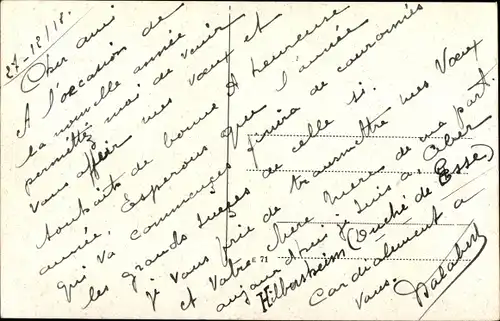 27-12/18.
Cher ami
A l'occasion de
la nouvelle année
permettez moi de venir
vous offrir mes vœux et
souhaits de bonne & heureuse
année. Esperons que l'année
qui va commencer finira de couronnés
les grands succes de celle si.
je vous prie de transmettre mes Vœux
et Votre chere Mere de ma part
aujourd'hui je suis a, Ober
Hilbersheim (Duché de Esse)
Cordialement a
vous.
E 71